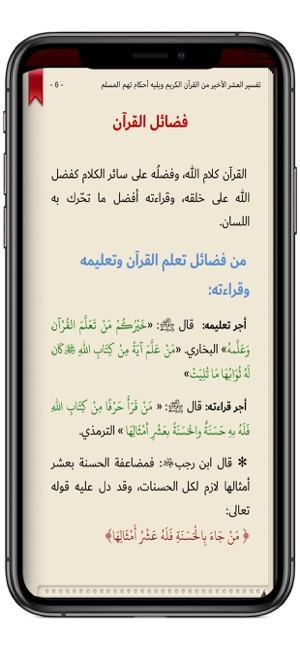 تفسير العشر الأخير من القرآن الكريم ويليه أحكام تهم المسلم - 6 -
فضائل القرآن
القرآن كلام الله، وفضلُه على سائر الكلام كفضل
الله على خلقه، وقراءته أفضل ما تحّرك به
اللسان.
من فضائل تعلم القرآن وتعليمه
وقراءته:
أجر تعليمه: قال ﷺ: «خَيْرُكُمْ مَنْ تَعَلَّمَ القُرْآنَ
وَعَلَّمَهُ» البخاري. «مَنْ عَلَّمَ آيَةً مِنْ كِتَابِ اللهِ ﷻ كَانَ
لَهُ ثَوَابُهَا مَا تُلِيَتْ»
أجر قراءته: قال ﷺ: « مَنْ قَرَأَ حَرْفًا مِنْ كِتَابِ اللهِ
فَلَهُ بِهِ حَسَنَةٌ وَالحَسَنَةُ بِعَشْرِ أَمْثَالِهَا » الترمذي.
* قال ابن رجب: فمضاعفة الحسنة بعشر
أمثالها لازم لكل الحسنات، وقد دل عليه قوله
تعالى:
﴿ مَنْ جَاءَ بِالْحَسَنَةِ فَلَهُ عَشْرُ أَمْثَالِهَا﴾